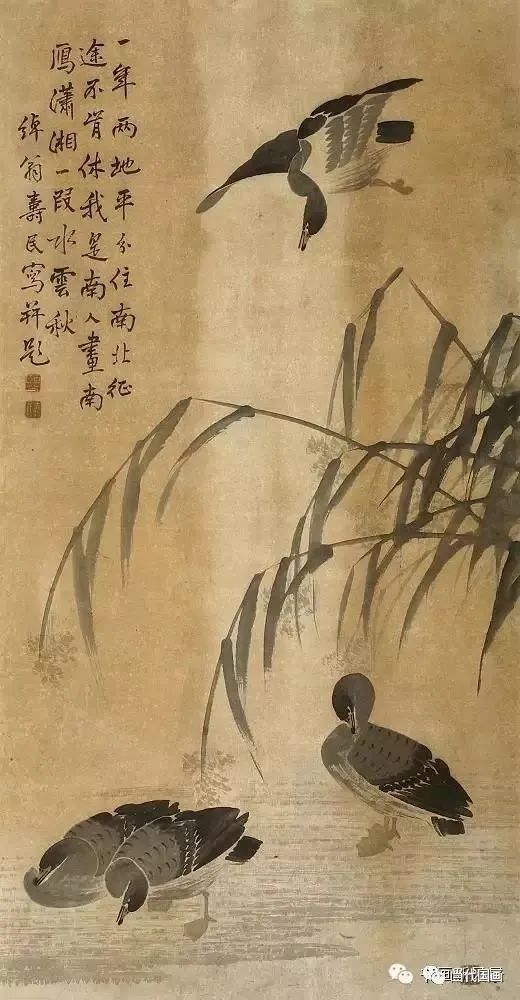 一年两地平分住南北征
途不肯休我是南人畫南
鴈瀟湘一段水雲秋
綽翁壽民寫并題
当代国画